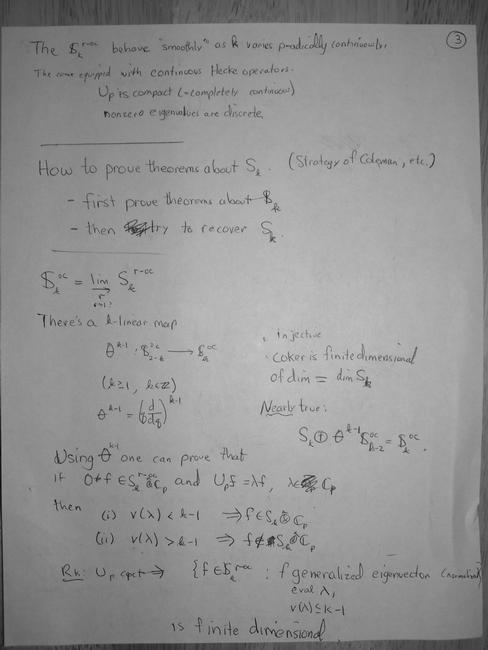 3
The 𝕊_k^{r-oc} behave "smoothly" as k varies p-adically continuously.
The come equipped with continuous Hecke operators.
U_p is compact (=completely continuous)
nonzero eigenvalues are discrete.
How to prove theorems about S_k. (Strategy of Coleman, etc.)
- first prove theorems about 𝕊_k
- then try to recover S_k.
𝕊_k^{oc} = lim→ S_k^{r-oc}
There's a k-linear map
θ^{k-1} : 𝕊_{2-k}^{oc} → 𝕊_k^{oc}
(k≥1, k∈ℤ)
θ^{k-1} = (q d/dq)^{k-1}
· injective
· coker is finite dimensional
of dim = dim S_k
Nearly true:
S_k ⊕ θ^{k-1} 𝕊_{k-2}^{oc} = 𝕊_k^{oc}.
Using θ^{k-1} one can prove that
if 0≠f ∈ S_k^{r-oc} ⊗̂ ℂ_p and U_p f = λf, λ∈ ℂ_p
then
(i) v(λ) < k-1 ⇒ f∈S_k ⊗̂ ℂ_p
(ii) v(λ) > k-1 ⇒ f∉ S_k ⊗̂ ℂ_p
Rk: U_p cpct ⇒ {f ∈ 𝕊_k^{r-oc} : f generalized eigenvector (normalized)
eval λ,
v(λ) ≤ k-1
is finite dimensional